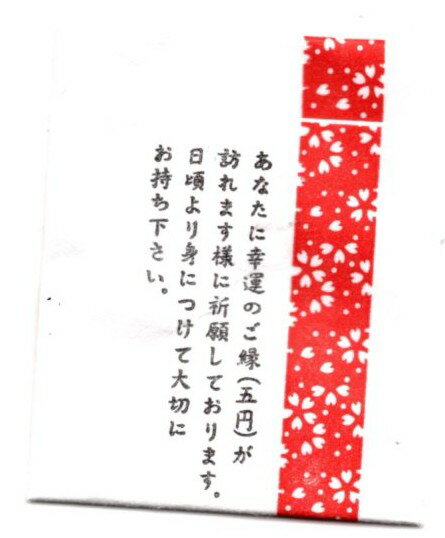 あなたに幸運のご縁(五円)が
訪れます様に祈願しております。
日頃より身につけて大切に
お持ち下さい。